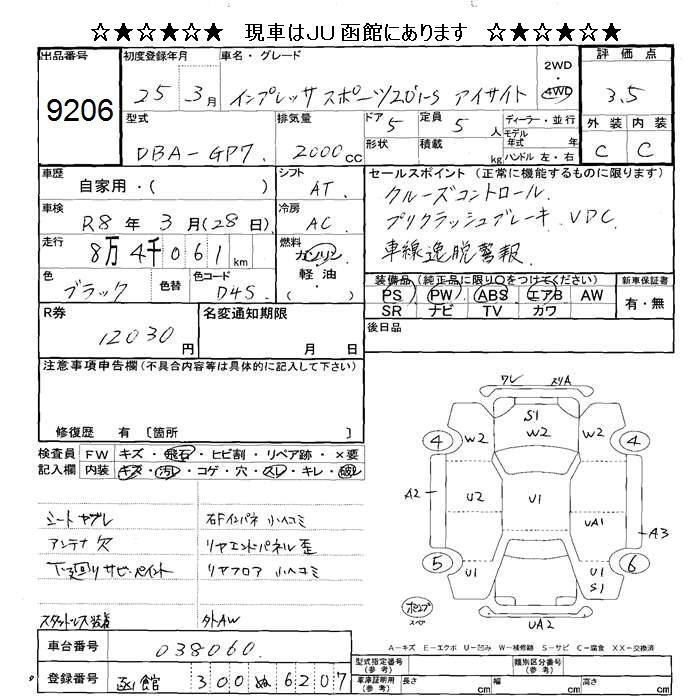 ☆★☆★☆★☆ 現車はJU函館にあります ☆★☆★☆★☆
出品番号
9206
初度登録年月
25 3月
車名・グレード
インプレッサスポーツ2.0i-S アイサイト
2WD
・
4WD
評価点
3.5
型式
DBA-GP7.
排気量
2000cc
ドア 5
形状
定員 5人
積載 kg
ディーラー・並行
モデル
年式 年
ハンドル 左・右
外装 内装
C C
車歴
自家用・( )
シフト
AT.
セールスポイント (正常に機能するものに限ります)
クルーズコントロール.
プリクラッシュブレーキ. VDC.
車線逸脱警報.
車検
R8年 3月(28日)
冷房
AC.
走行
8万4千061km
燃料
ガソリン
軽油・
( )
色
ブラック
色替
色コード
D4S.
装備品(純正品に限り○をつけてください)
PS PW ABS エアB AW
SR ナビ TV カワ
新車保証書
有・無
R券
12030円
名変通知期限
月 日
後日品
注意事項申告欄(不具合内容等は具体的に記入して下さい)
修復歴 有 〔箇所 〕
検査員
記入欄
FW キズ・飛石・ヒビ割・リペア跡・×要
内装 キズ・汚レ・コゲ・穴・スレ・キレ・
シートヤブレ
アンテナ欠
下廻りサビ・ペイント
スタッドレス装着
右Fインパネ小ヘコミ
リヤエンドパネル歪
リヤフロア小ヘコミ
外AW
ワレ スリA
S1
W2
W2 W2
4 4
A2 U2 U1 UA1 A3
5 6
U1 U1
S1
UA2
スペア
A-キズ E-エクボ U-凹み W-補修跡 S-サビ C-腐食 XX-交換済
車台番号
038060.
登録番号
函館 300 ぬ 6207
型式指定番号
(参考)
類別区分番号
(参考)
車庫証明用
(参考)
長さ cm
幅 cm
高さ cm